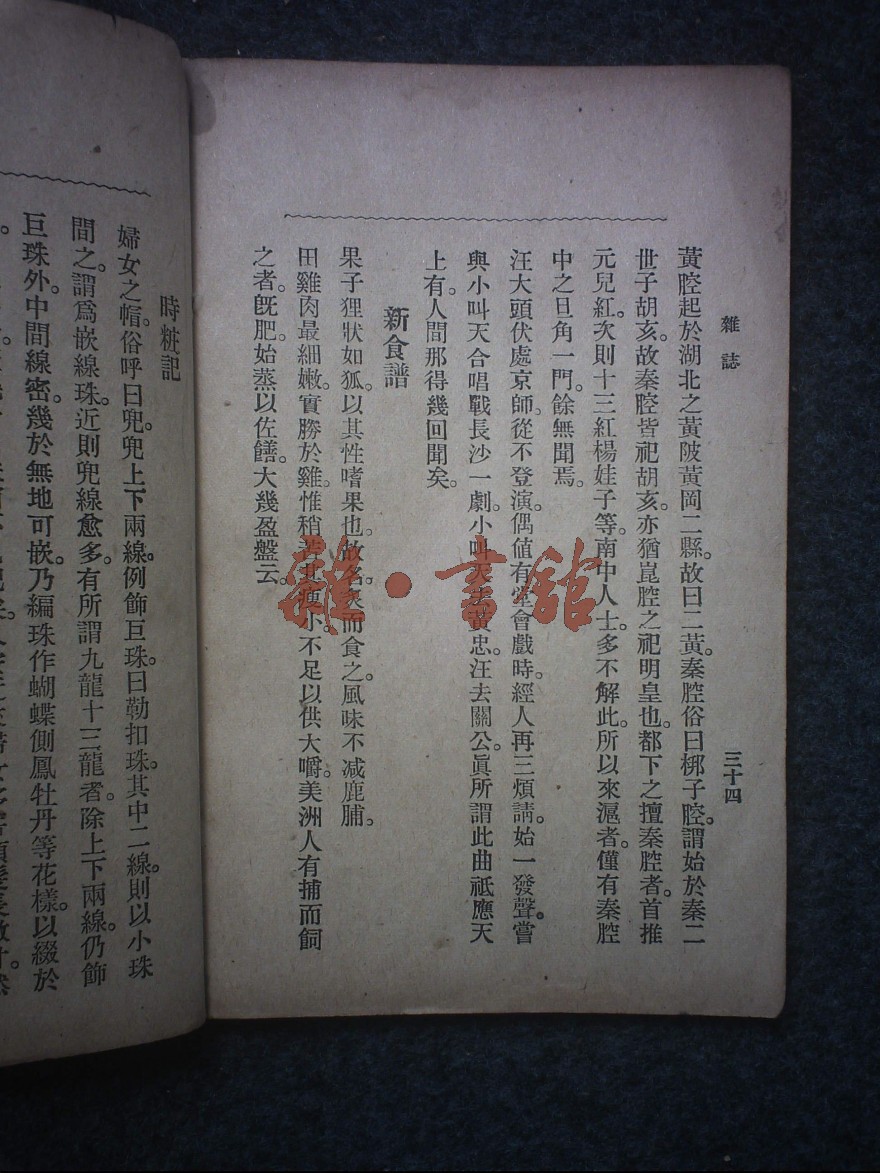 雜誌
三十四
黃腔起於湖北之黃陂黃岡二縣。故曰二黃。秦腔俗曰梆子腔。謂始於秦二
世子胡亥。故秦腔皆祀胡亥。亦猶崑腔之祀明皇也。都下之擅秦腔者。首推
元兒紅。次則十三紅楊娃子等。南中人士。多不解此。所以來滬者。僅有秦腔
中之旦角一門。餘無聞焉。
汪大頭伏處京師。從不登演。偶値有堂會戲時。經人再三煩請。始一發聲。嘗
與小叫天合唱戰長沙一劇。小叫天去黃忠。汪去關公。眞所謂此曲祗應天
上有。人間那得幾回聞矣。
新食譜
果子狸狀如狐。以其性嗜果也。故名。炙而食之。風味不減鹿脯。
田雞肉最細嫩。實勝於雞。惟稍苦其瘦小。不足以供大嚼。美洲人有捕而飼
之者。旣肥始蒸以佐饍。大幾盈盤云。
雜·書館
時糚記
婦女之帽。俗呼曰兜。兜上下兩線。例飾巨珠。曰勒扣珠。其中二線。則以小珠
間之。謂爲嵌線珠。近則兜線愈多。有所謂九龍十三龍者。除上下兩線。仍飾
巨珠外。中間線密。幾於無地可嵌。乃編珠作蝴蝶側鳳牡丹等花樣。以綴於